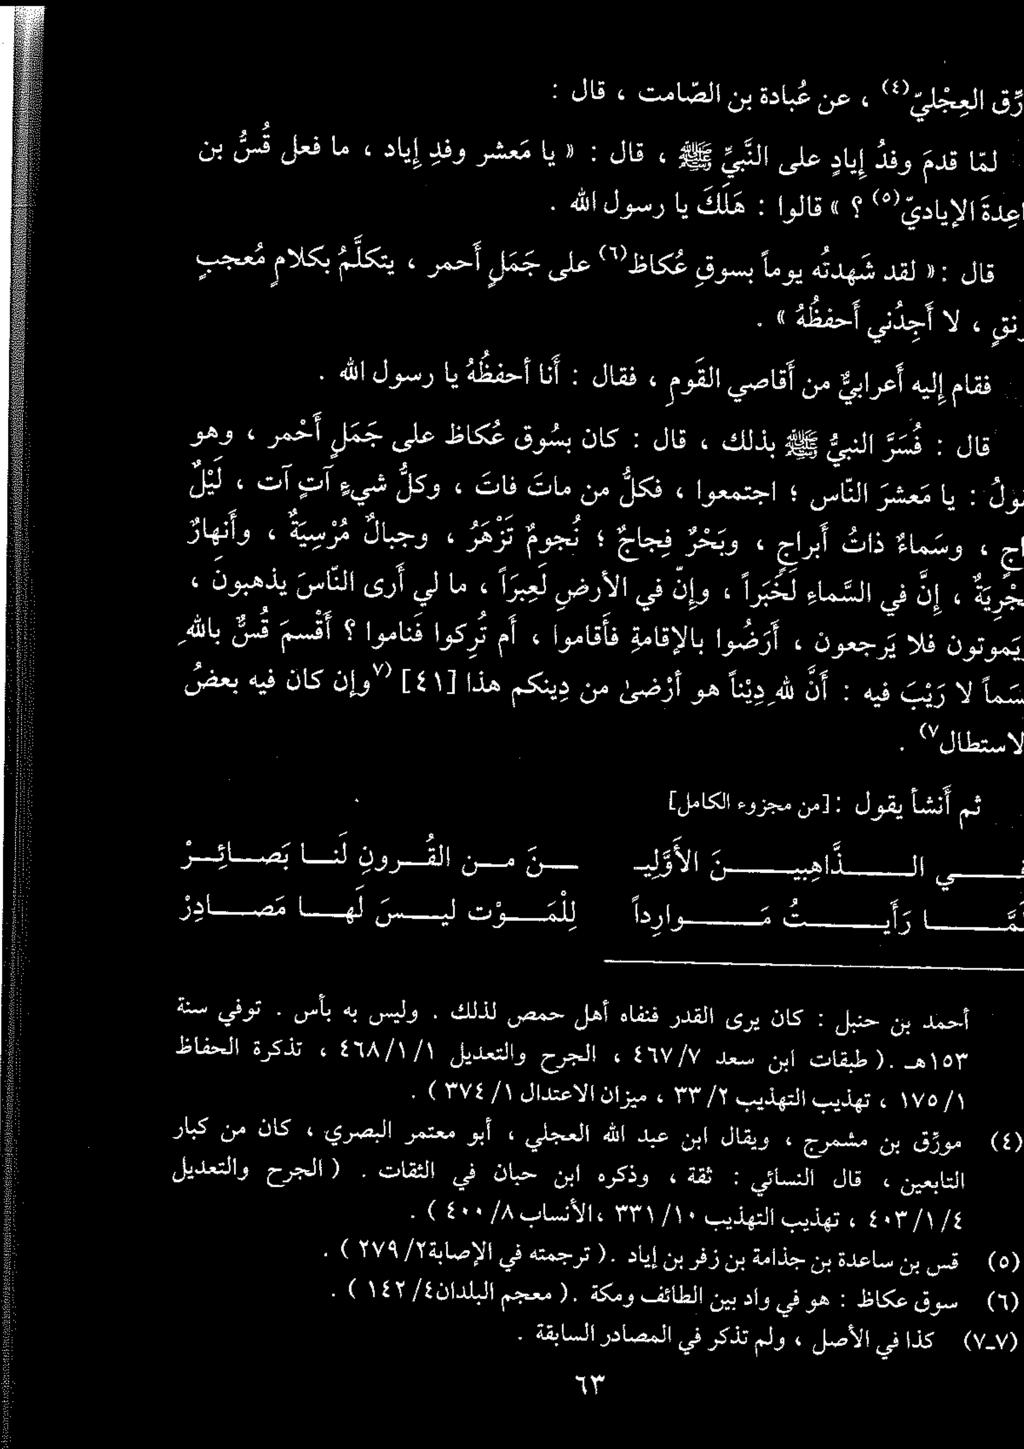 العِجْليّ(٤) ، عن عُبادة بن الصّامت ، قال :
لمّا قدمَ وفدُ إيادٍ على النَّبيِّ ﷺ ، قال : « يا مَعشر وفدِ إياد ، ما فعل قُسُّ بن
الإياديّ(٥) ؟ » قالوا : هَلَكَ يا رسول الله .
قال : « لقد شَهدتُه يوماً بسوقِ عُكاظ(٦) على جَمَلٍ أحمر ، يتكلَّمُ بكلامٍ مُعجبٍ
، لا أَجِدُني أَحفظُهُ » .
فقام إليه أَعرابيٌّ من أَقاصي القَومِ ، فقال : أنا أحفظُهُ يا رسول الله .
قال : فُسَرَّ النبيُّ ﷺ بذلك ، قال : كان بسُوق عُكاظ على جَمَلٍ أَحْمر ، وهو
: يا مَعشرَ النّاس ؛ اجتمعوا ، فكلُّ من ماتَ فاتَ ، وكلُّ شيءٍ آتٍ آت ، لَيْلٌ
، وسَماءٌ ذاتُ أَبراجٍ ، وبَحْرٌ فِجاجٌ ؛ نُجومٌ تَزْهَرُ ، وجبالٌ مُرْسِيَةٌ ، وأَنهارٌ
، إنَّ في السَّماءِ لَخَبَراً ، وإنّ في الأرضِ لَعِبَراً ، ما لي أَرى النّاسَ يذهبونَ ،
فلا يَرجعون ، أَرَضُوا بالإقامةِ فأَقاموا ، أم تُركوا فَناموا ؟ أَقْسمَ قُسٌّ باللهِ
لا رَيْبَ فيه : أَنَّ للهِ دِيْناً هو أَرْضىٰ من دِينكم هذا [٤١] (٧وإن كان فيه بعضُ
الاستطال٧) .
ثم أَنشأ يقول : [من مجزوء الكامل]
في الـذَّاهِبيـنَ الأَوَّليـ ـنَ مـن القُـرونِ لَنـا بَصـائِـرْ
رَأَيـتُ مَـوارِداً لِلْمَـوْت ليـسَ لَهـا مَصـادِرْ
أحمد بن حنبل : كان يرى القدر فنفاه أهل حمص لذلك . وليس به بأس . توفي سنة
١٥٣هـ .( طبقات ابن سعد ٧/ ٤٦٧ ، الجرح والتعديل ١/ ١/ ٤٦٨ ، تذكرة الحفاظ
١/ ١٧٥ ، تهذيب التهذيب ٢/ ٣٣ ، ميزان الاعتدال ١/ ٣٧٤ ) .
(٤) مورِّق بن مشمرج ، ويقال ابن عبد الله العجلي ، أبو معتمر البصري ، كان من كبار
التابعين ، قال النسائي : ثقة ، وذكره ابن حبان في الثقات . ( الجرح والتعديل
٤/ ١/ ٤٠٣ ، تهذيب التهذيب ١٠/ ٣٣١ ، الأنساب ٨/ ٤٠٠ ) .
(٥) قس بن ساعدة بن جذامة بن زفر بن إياد .( ترجمته في الإصابة٢/ ٢٧٩ ) .
(٦) سوق عكاظ : هو في واد بين الطائف ومكة .( معجم البلدان٤/ ١٤٢ ) .
(٧-٧) كذا في الأصل ، ولم تذكر في المصادر السابقة .
٦٣